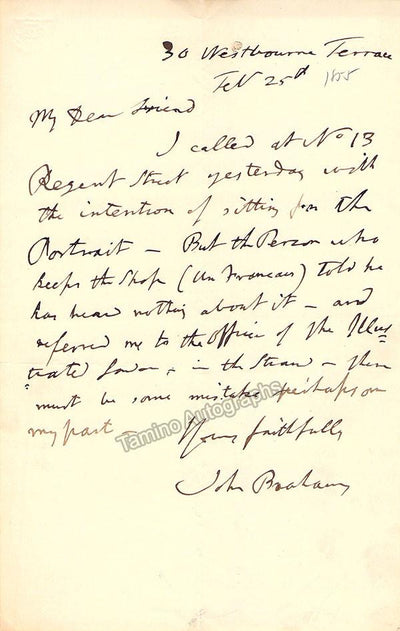 30 Westbourne Terrace
Feb 25th 1855
My Dear Friend
I called at No 13
Regent Street yesterday with
the intention of sitting for the
Portrait - But the Person who
keeps the Shop (un Francais) told he
has hear nothing about it - and
referred me to the Office of the Illus
trated London in the Strand - there
must be some mistake perhaps on
my part -
Yours faithfully
John Braham
Tamino Autographs